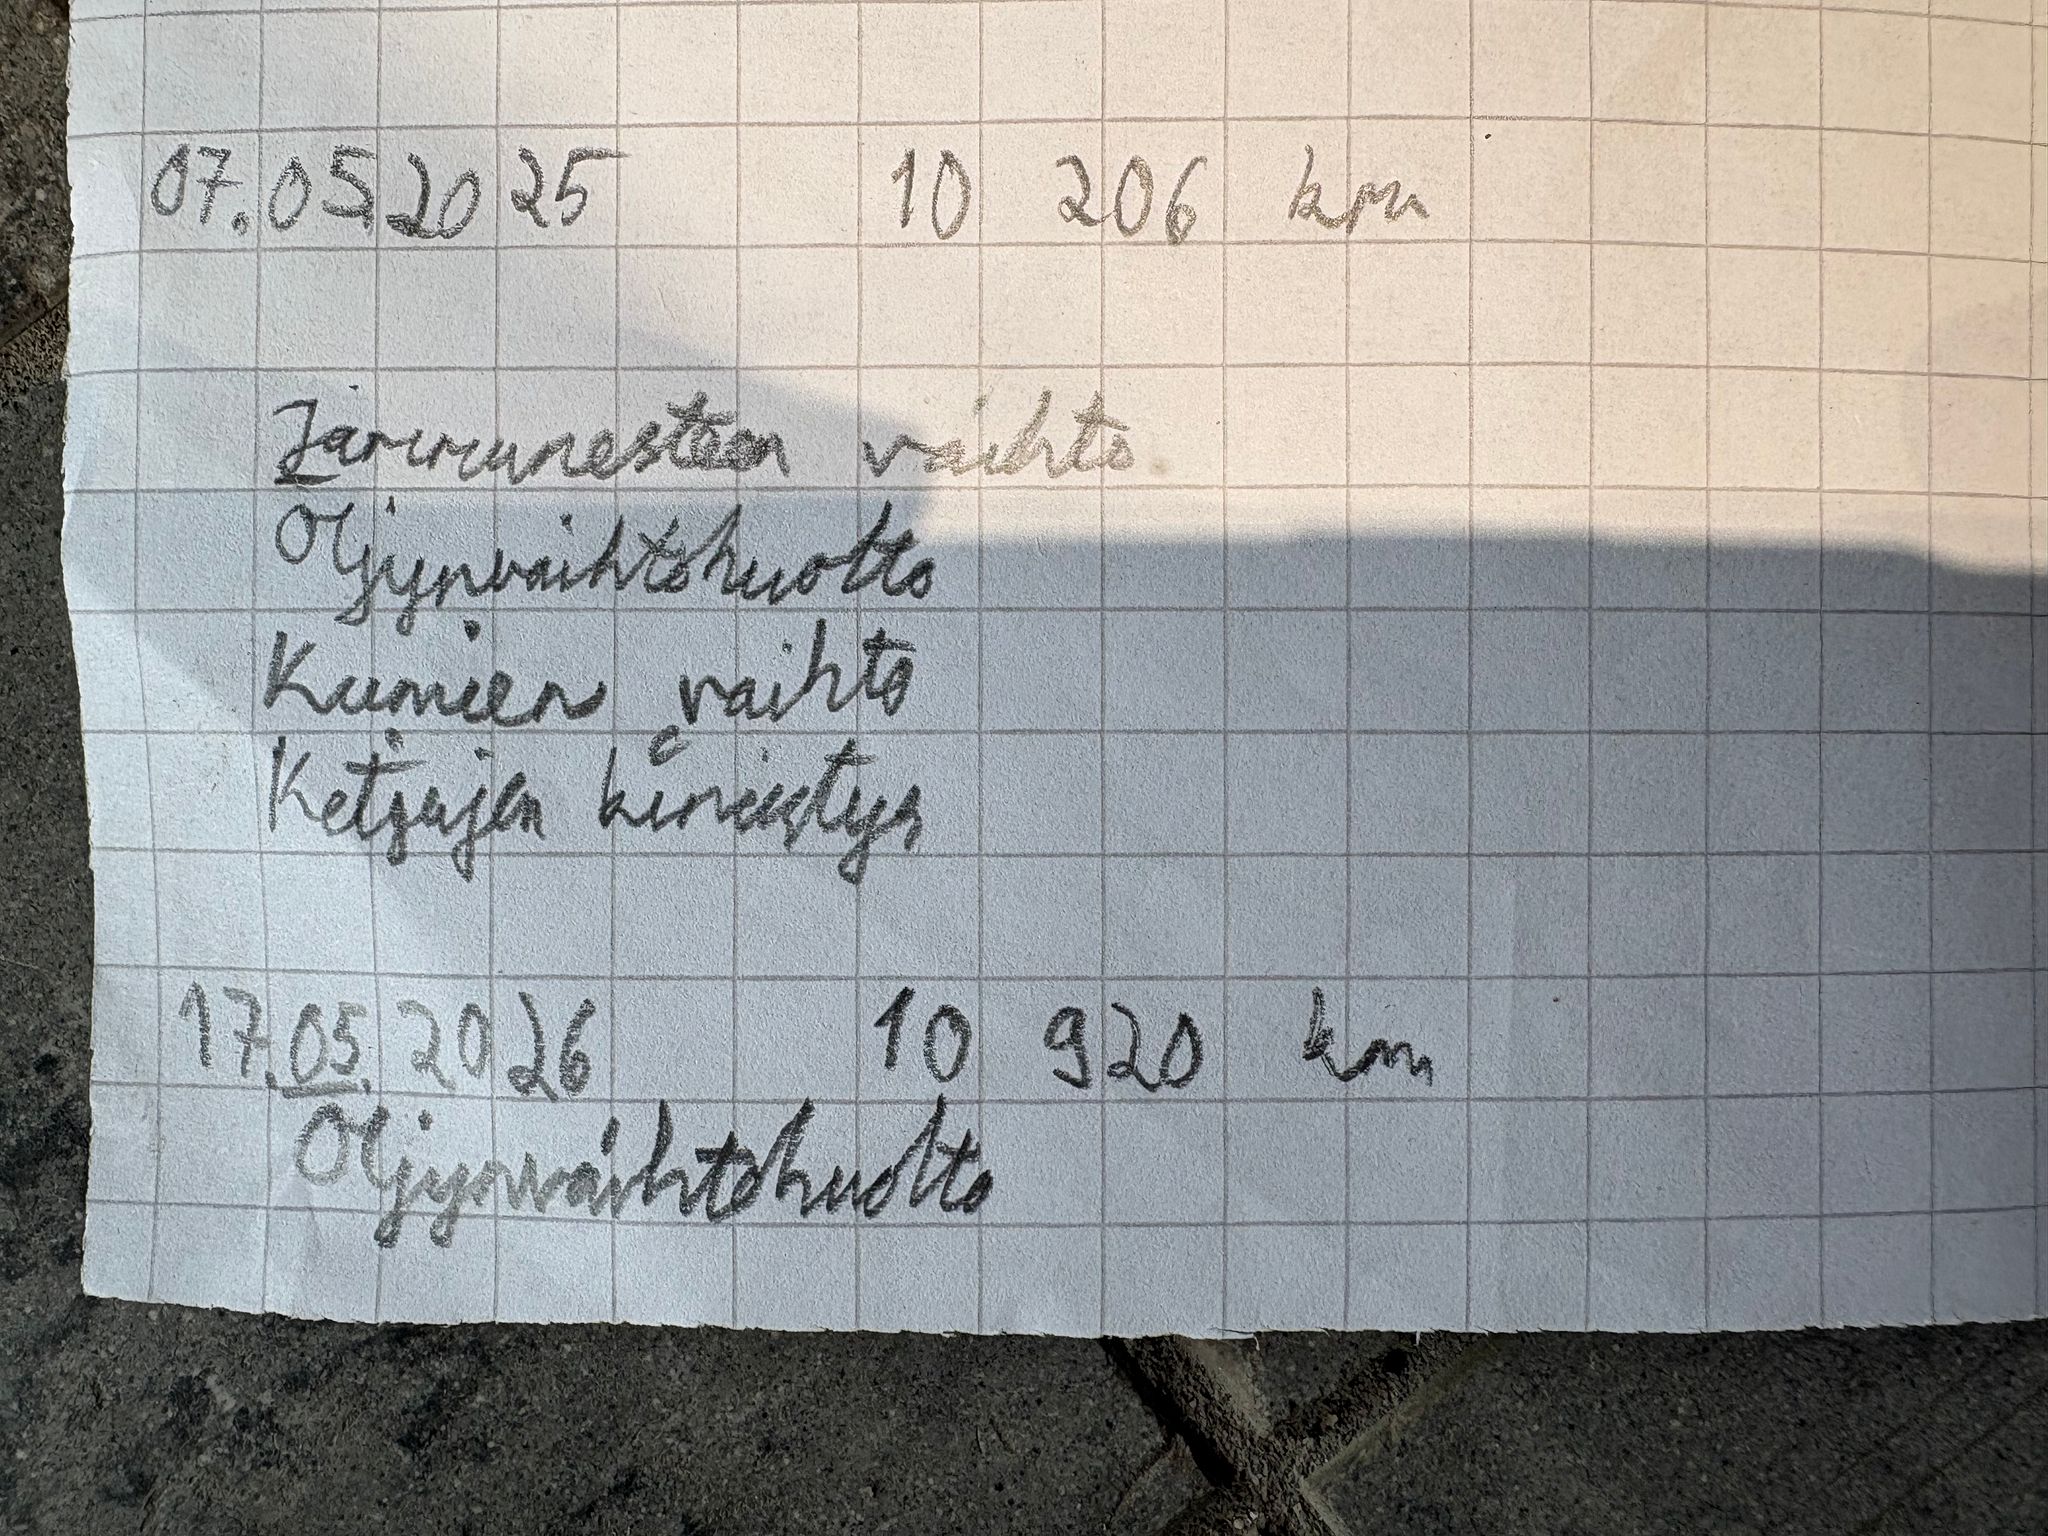 07.05.2025 10 206 km
Jarrunesteen vaihto
Oljynvaihtohuolto
Kumien vaihto
Ketjujen kiristys
17.05.2026 10 920 km
Oljynvaihtohuolto